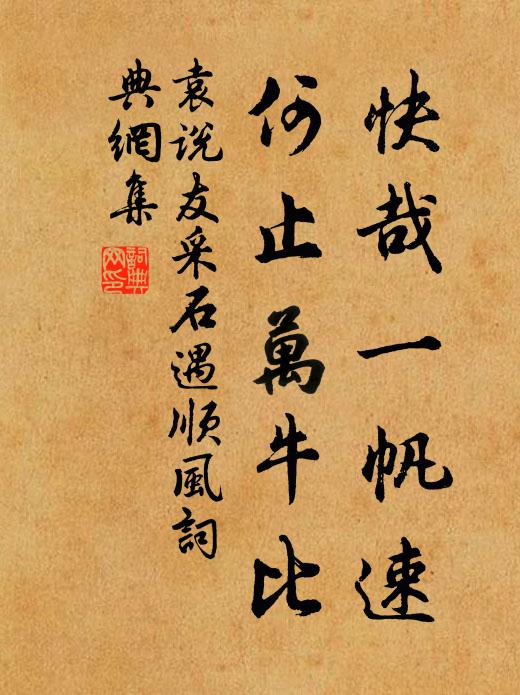 快哉一帆速
何止萬牛比
袁說友采石遇順風詞
典網集
詞典
网印